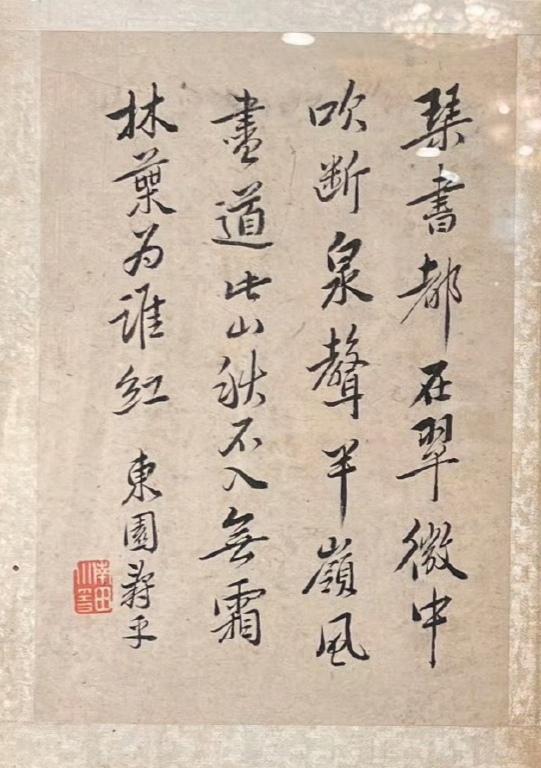 琴書都在翠微中
吹断泉聲半嶺風
盡道此山秋不入無霜
林葉為誰紅 東園壽平
南田